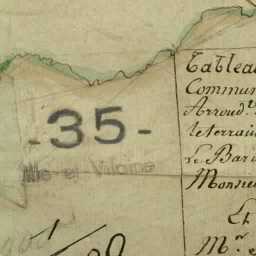 - 35 -
Ille-et-Vilaine
Tableau
Commun
Arroud.
le terrain
Le Bar
Monsie
Et
M.